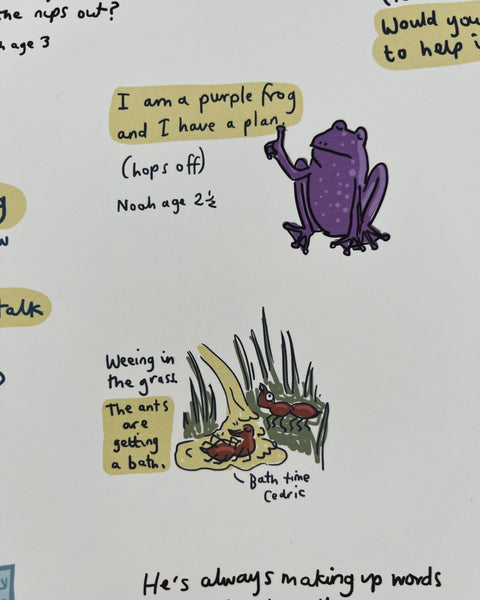 the nips out?
age 3
Would you
to help i
I am a purple frog
and I have a plan.
(hops off)
Noah age 2½
g
w
talk
Weeing in
the grass.
The ants
are
getting
a bath.
Bath time
Cedric
He's always making up words